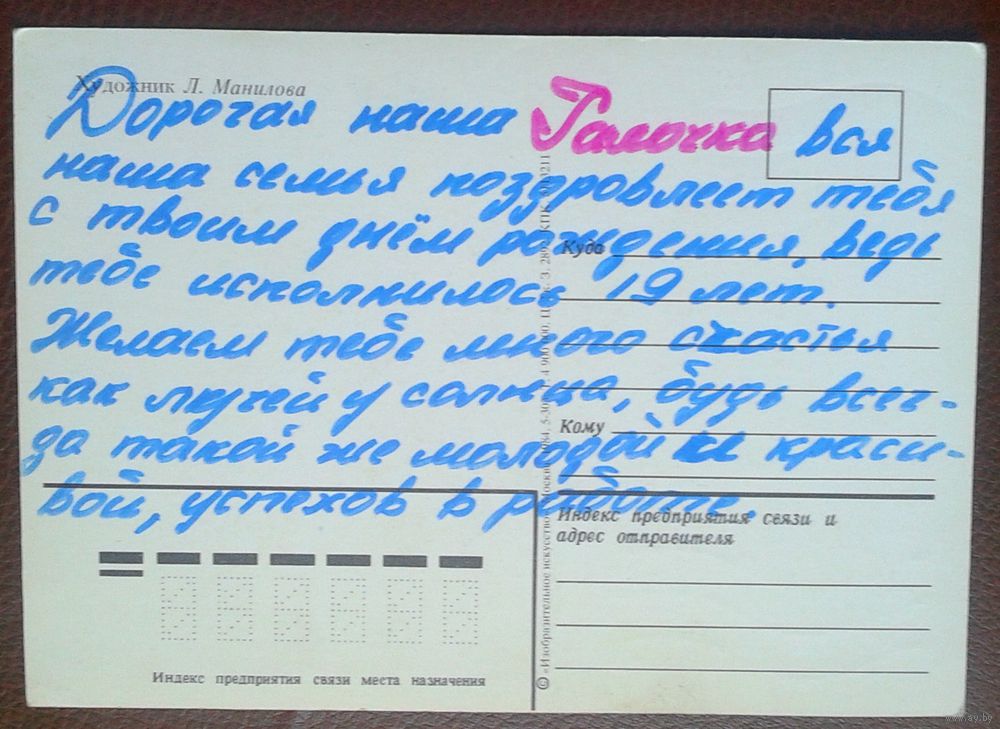 Художник Л. Манилова
Дорогая наша Галочка вся
наша семья поздровлеет тебя
с твоим днём рождения, ведь
тебе исполнилось 19 лет.
Желаем тебе много счастья
как лучей у солнца, будь всег-
да такой же молодой и краси-
вой, успехов в работе.
Куда
Кому
Индекс предприятия связи и
адрес отправителя
Индекс предприятия связи места назначения
© «Изобразительное искусство». Москва. 1984.
www.ay.by